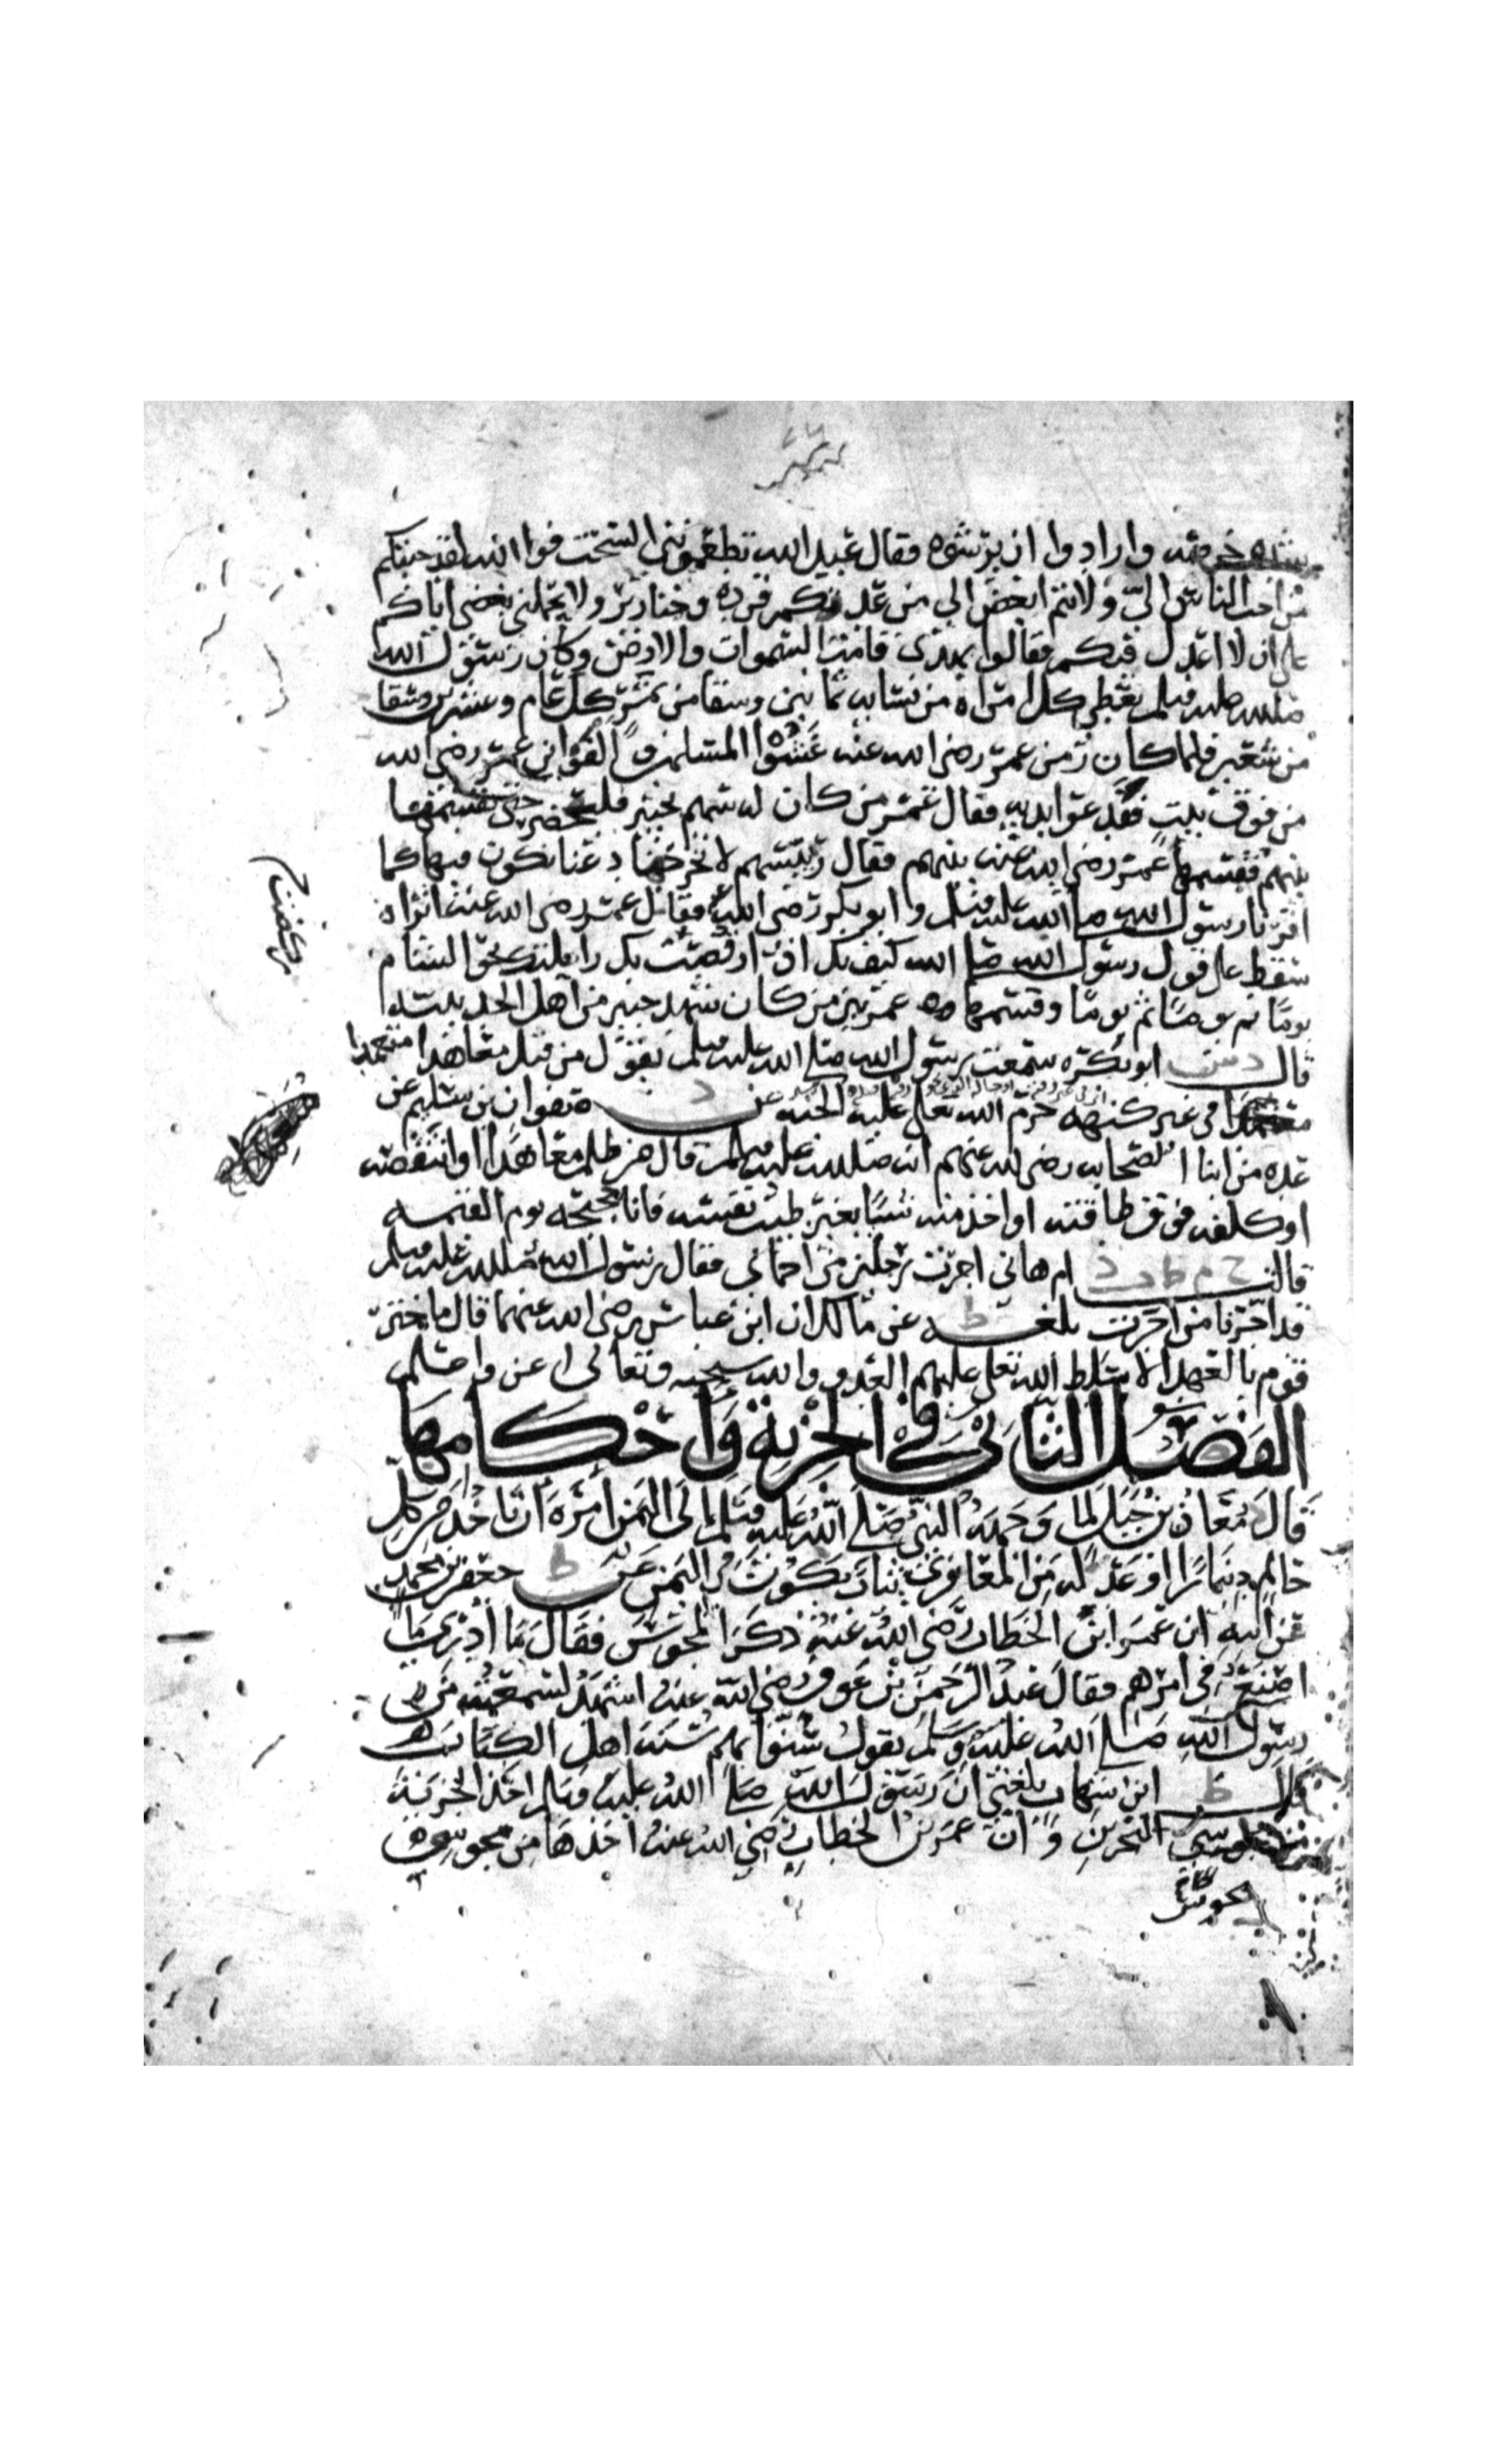 شدة خرصه وارادوا ان يرشوه فقال عبد الله تطعموننى السحت فوا الله لقد جئتكم
من احب الناس الىّ ولانتم ابغض الى من عدتكم قردة وخنازير ولا يحملنى بغضى اياكم
على ان لا اعدل فيكم فقالوا بهذى قامت السموات والارض وكان رسول الله
صلى الله عليه وسلم يعطى كل امراة من نسايه ثمانين وسقا من تمر كل عام وعشرين وسقا
من شعير فلما كان زمن عمر رضى الله عنه غشوا المسلمين والقوا ابن عمر رضى الله
من فوق بيت ففدعوا يديه فقال عمر من كان له سهم بخيبر فليحضر حتى نقسمها
بينهم فقسمها عمر رضى الله عنه بينهم فقال رئيسهم لا تخرجنا دعنا نكون فيها كما
اقرنا رسول الله صلى الله عليه وسلم وابو بكر رضى الله عنه فقال عمر رضى الله عنه اتراه
سقط على قول رسول الله صلى الله كيف بك اذا رقصت بك راحلتك نحو الشام
يوما ثم يوما ثم يوما وقسمها عمر بين من كان شهد خيبر من اهل الحديبية
قال د س ابو بكره سمعت رسول الله صلى الله عليه وسلم يقول من قتل معاهدا متعمدا
فى غير كنهه حرم الله تعالى عليه الجنه عن د صفوان بن سليم عن
عده من ابنا الصحابه رضى الله عنهم انه صلى الله عليه وسلم قال من ظلم معاهدا او انتقصه
او كلفه فوق طاقته او اخذ منه شيا بغير طيب نفسه فانا حجيجه يوم القيمه
قالت خ م ط د ام هانى اجرت رجلين من احمائى فقال رسول الله صلى الله عليه وسلم
قد اجرنا من اجرت بلغه ط عن مالك ان ابن عباس رضى الله عنهما قال ما ختر
قوم بالعهد الا سلط الله تعالى عليهم العدو والله سبحنه وتعالى اعز واعلم
الفصل الثانى فى الجزية واحكامها
قال معاذ بن جبل لما وجهه النبى صلى الله عليه وسلم الى اليمن امره ان ياخذ من كل
حالم دينارا او عدله من المعافرى ثياب يكون ثم باليمن عن ط جعفر بن محمد
عن ابيه ان عمر ابن الخطاب رضى الله عنه ذكر المجوس فقال ما ادرى ما
اصنع فى امرهم فقال عبد الرحمن بن عوف رضى الله عنه اشهد لسمعته من
رسول الله صلى الله عليه وسلم يقول سنوا بهم سنة اهل الكتاب
قال ط ابن شهاب بلغنى ان رسول الله صلى الله عليه وسلم اخذ الجزية
من مجوس البحرين وان عمر بن الخطاب رضى الله عنه اخذها من مجوس